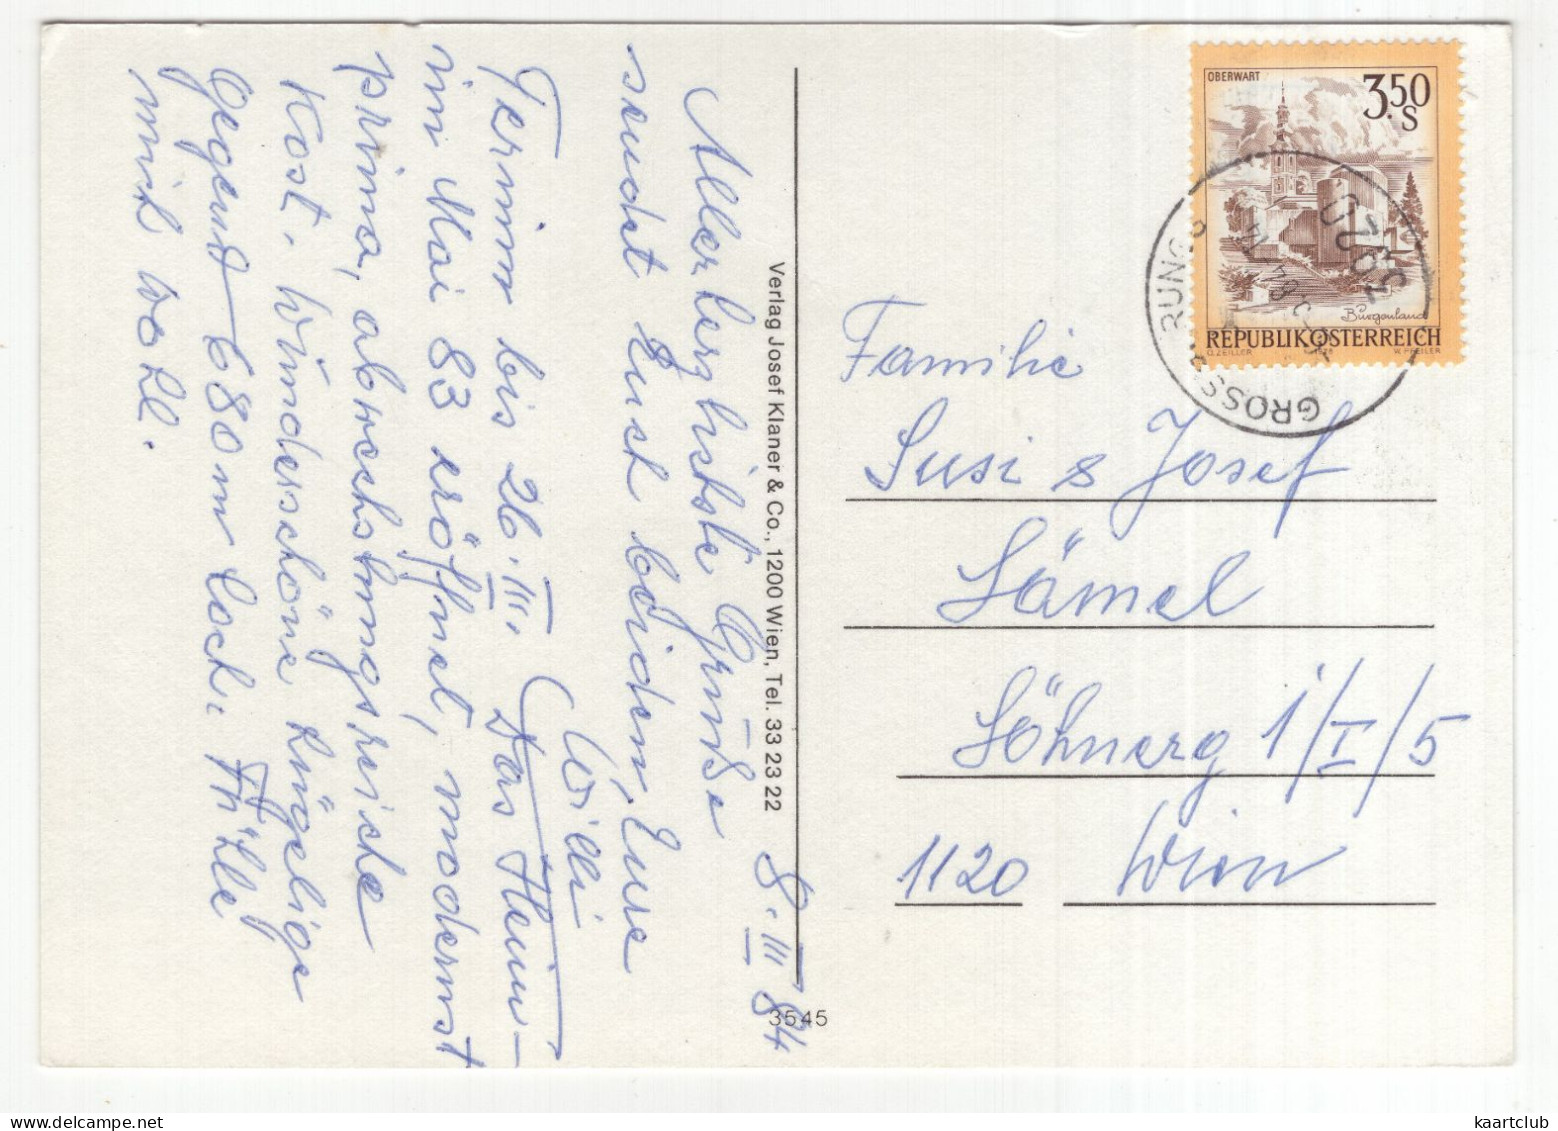 8. III 84
Allerherzlichste Grüße
sendet Euch beiden, Eure
Cilli
Termin bis 26. III. Das Heim
im Mai 83 eröffnet, modernst
prima, abwechslungsreiche
Kost. Wunderschöne hügelige
Gegend 680m hoch. Fühle
mich wohl.
Verlag Josef Klaner & Co., 1200 Wien, Tel. 33 23 22
3545
OBERWART
3.50
S
Burgenland
REPUBLIK ÖSTERREICH
O. ZEILLER
W. PFEILER
GROSS
RUNG
Familie
Susi & Josef
Sämel
1/I/5
1120 Wien
kaartclub